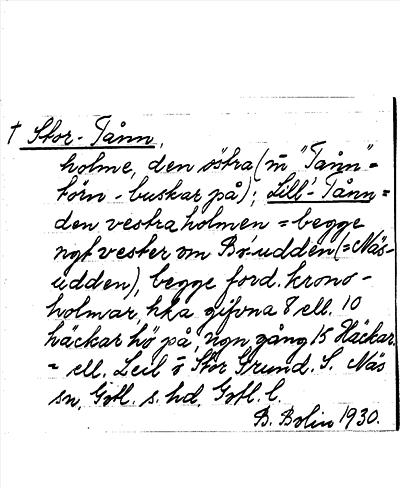 † Stor-Tånn,
holme, den östra (m̄ "Tånn"=
törn-buskar på); Lill'-Tånn=
den vestra holmen = begge
ngt vester om Bx-udden (=Näs-
udden), begge ford. krono-
holmar, hka gifvna 8 ell. 10
häckar hö på, ngn gång 15 Häckar.
= ell. Leil o Stor Grund. S. Näs
sn, Gotl. s. hd, Gotl. l.
B. Bolin 1930.